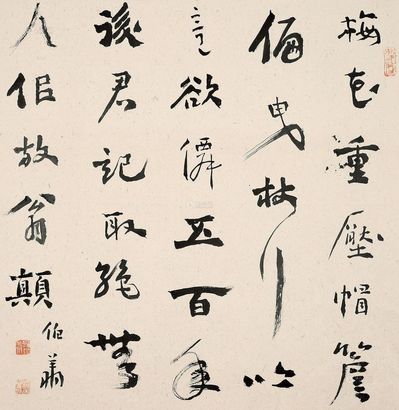 梅花重壓帽簷
偏曳杖行吟
意欲僊五百年
後君記取絕無
人佀放翁顛
伯羲